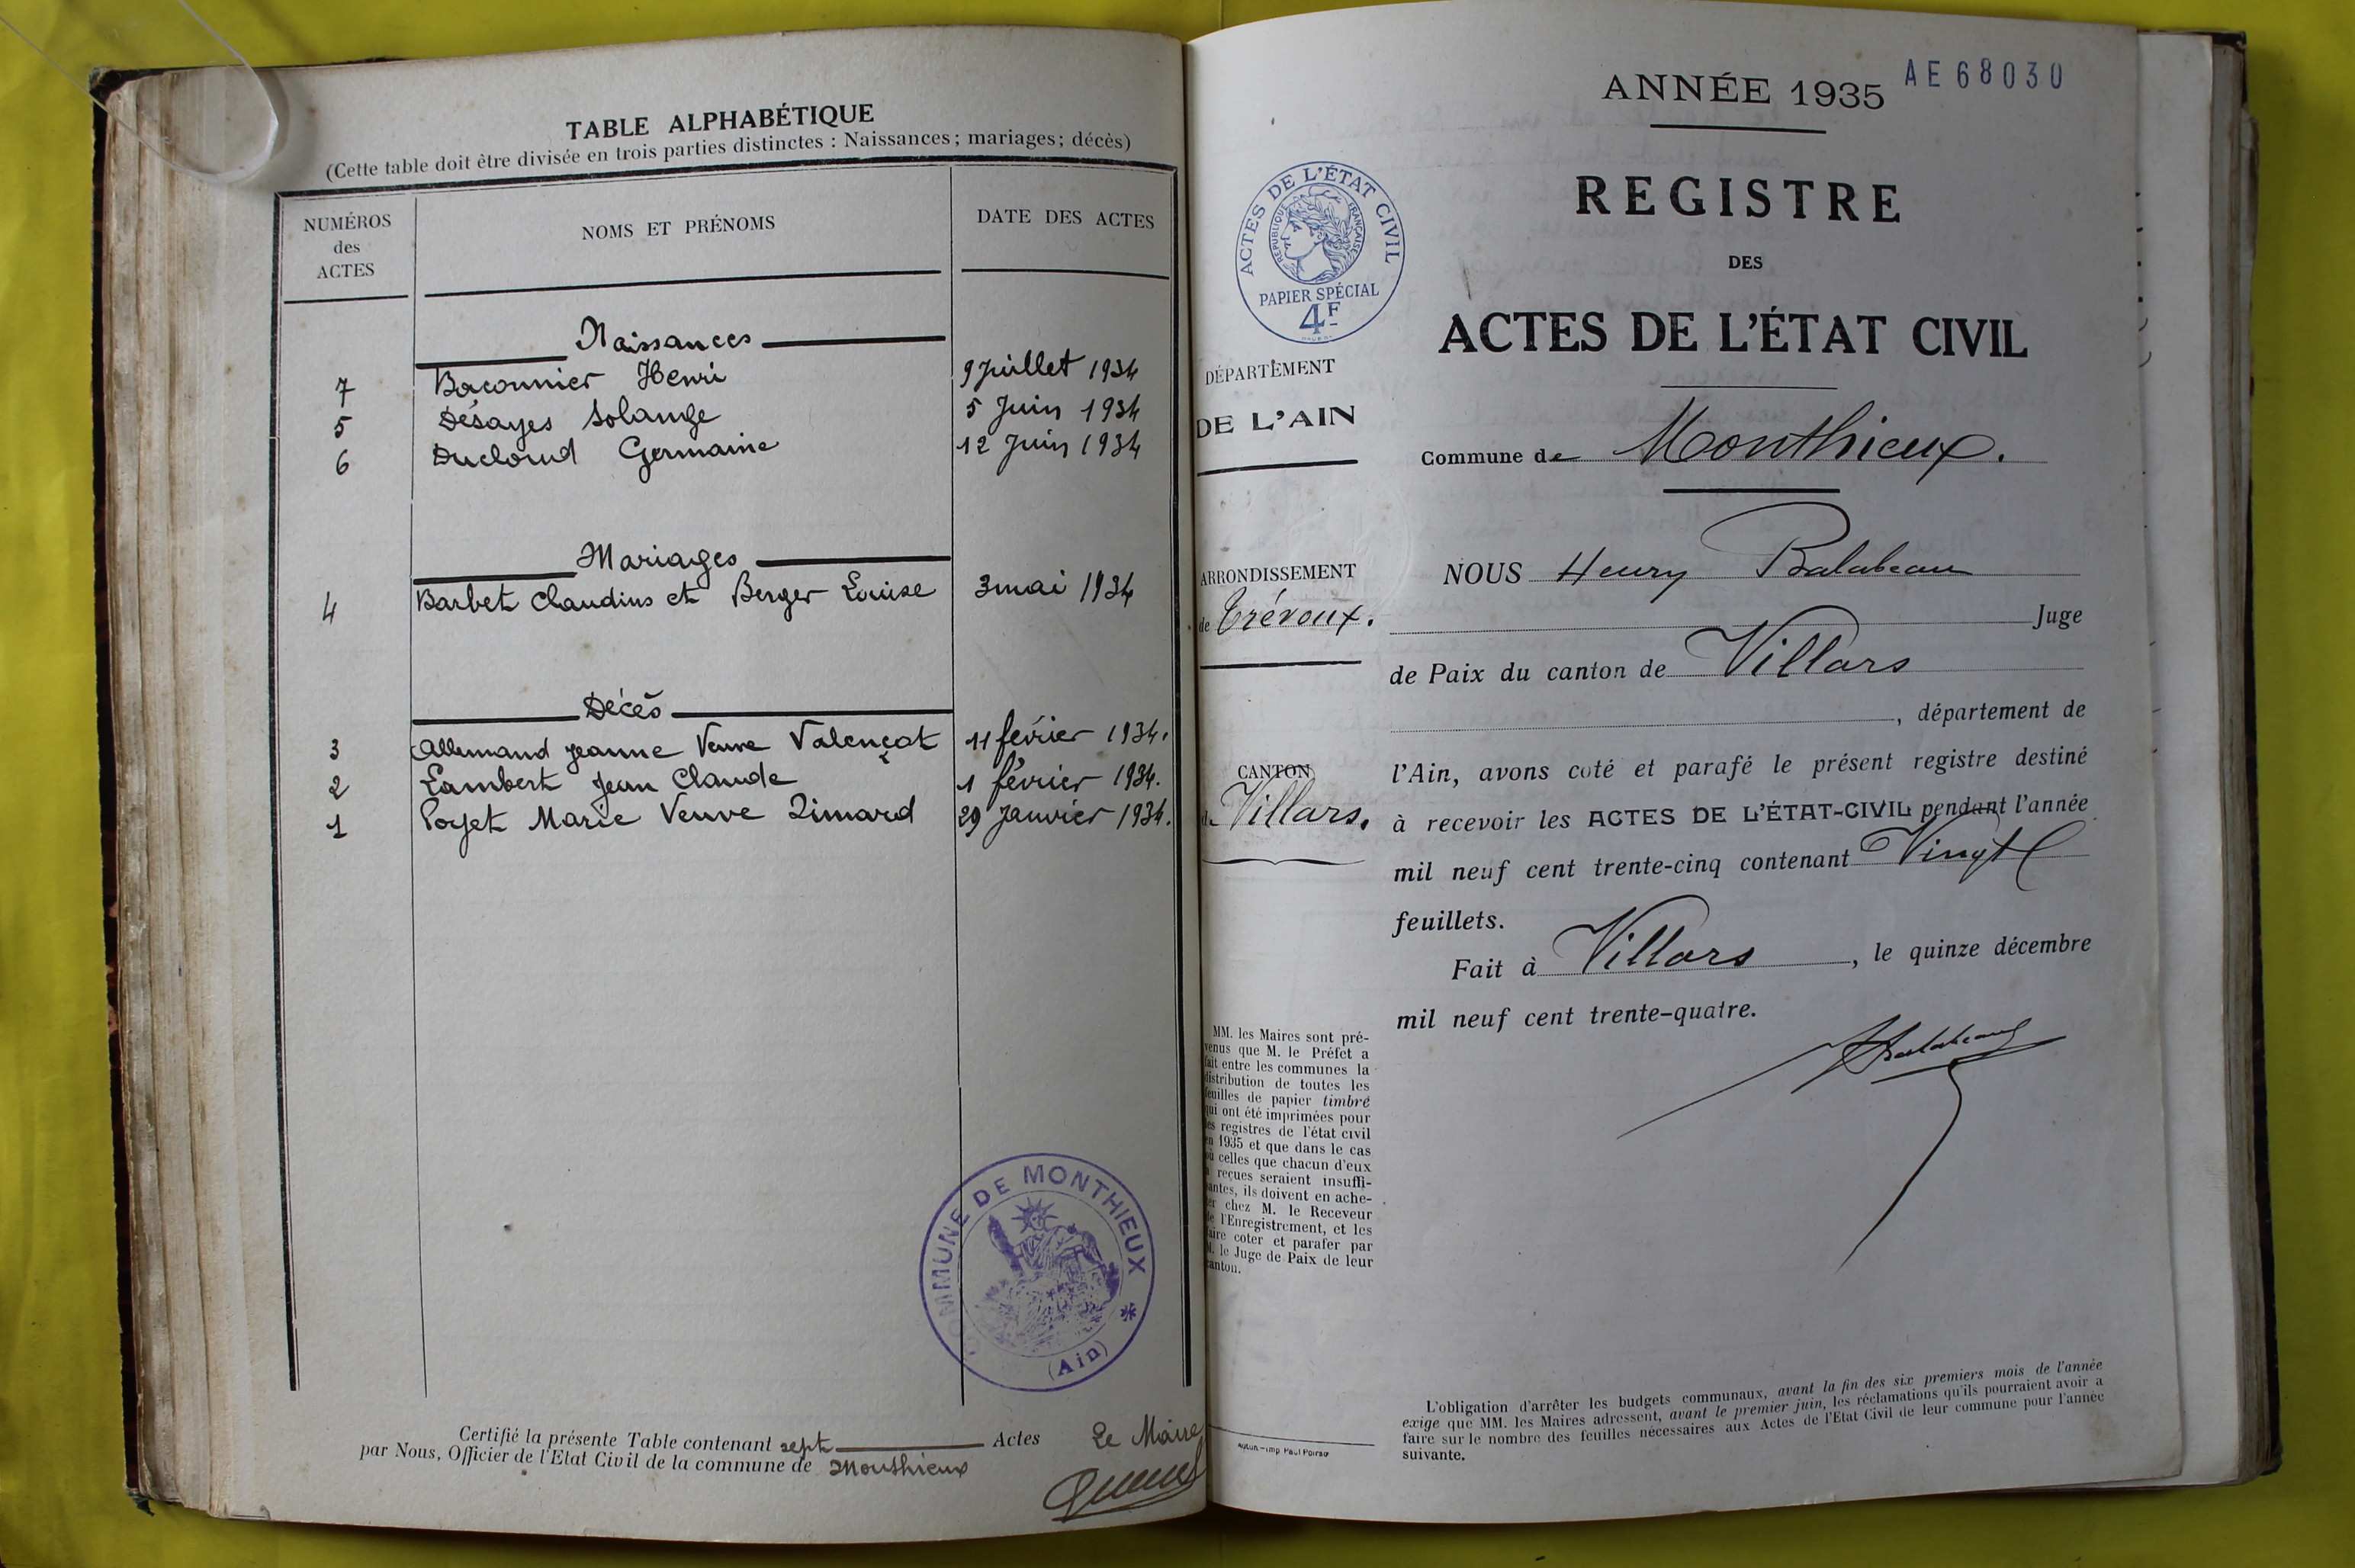 TABLE ALPHABÉTIQUE
(Cette table doit être divisée en trois parties distinctes : Naissances ; mariages ; décès)
NUMÉROS
des
ACTES
NOMS ET PRÉNOMS
DATE DES ACTES
Naissances
7 Baconnier Henri 9 Juillet 1934
5 Désayes Solange 5 Juin 1934
6 Ducloud Germaine 12 Juin 1934
Mariages
4 Barbet Claudius et Berger Louise 3 mai 1934
Décès
3 Allemand Jeanne Veuve Valençot 11 février 1934.
2 Lambert Jean Claude 1 février 1934.
1 Poyet Marie Veuve Limard 29 Janvier 1934.
COMMUNE DE MONTHIEUX
(Ain)
Certifié la présente Table contenant sept Actes
par Nous, Officier de l'Etat Civil de la commune de Monthieux
Le Maire
ANNÉE 1935
AE68030
REGISTRE
DES
ACTES DE L'ÉTAT CIVIL
ACTES DE L'ÉTAT CIVIL
RÉPUBLIQUE FRANÇAISE
PAPIER SPÉCIAL
4F
DÉPARTEMENT
DE L'AIN
Commune de Monthieux.
ARRONDISSEMENT
de Trévoux.
CANTON
de Villars.
NOUS Henry Balabeau
Juge
de Paix du canton de Villars
, département de
l'Ain, avons coté et parafé le présent registre destiné
à recevoir les ACTES DE L'ÉTAT-CIVIL pendant l'année
mil neuf cent trente-cinq contenant Vingt
feuillets.
Fait à Villars, le quinze décembre
mil neuf cent trente-quatre.
HBalabeau
MM. les Maires sont pré-
venus que M. le Préfet a
fait entre les communes la
distribution de toutes les
feuilles de papier timbré
qui ont été imprimées pour
les registres de l'état civil
en 1935 et que dans le cas
où celles que chacun d'eux
a reçues seraient insuffi-
santes, ils doivent en ache-
ter chez M. le Receveur
de l'Enregistrement, et les
faire coter et parafer par
M. le Juge de Paix de leur
canton.
L'obligation d'arrêter les budgets communaux, avant la fin des six premiers mois de l'année
exige que MM. les Maires adressent, avant le premier juin, les réclamations qu'ils pourraient avoir à
faire sur le nombre des feuilles nécessaires aux Actes de l'Etat Civil de leur commune pour l'année
suivante.